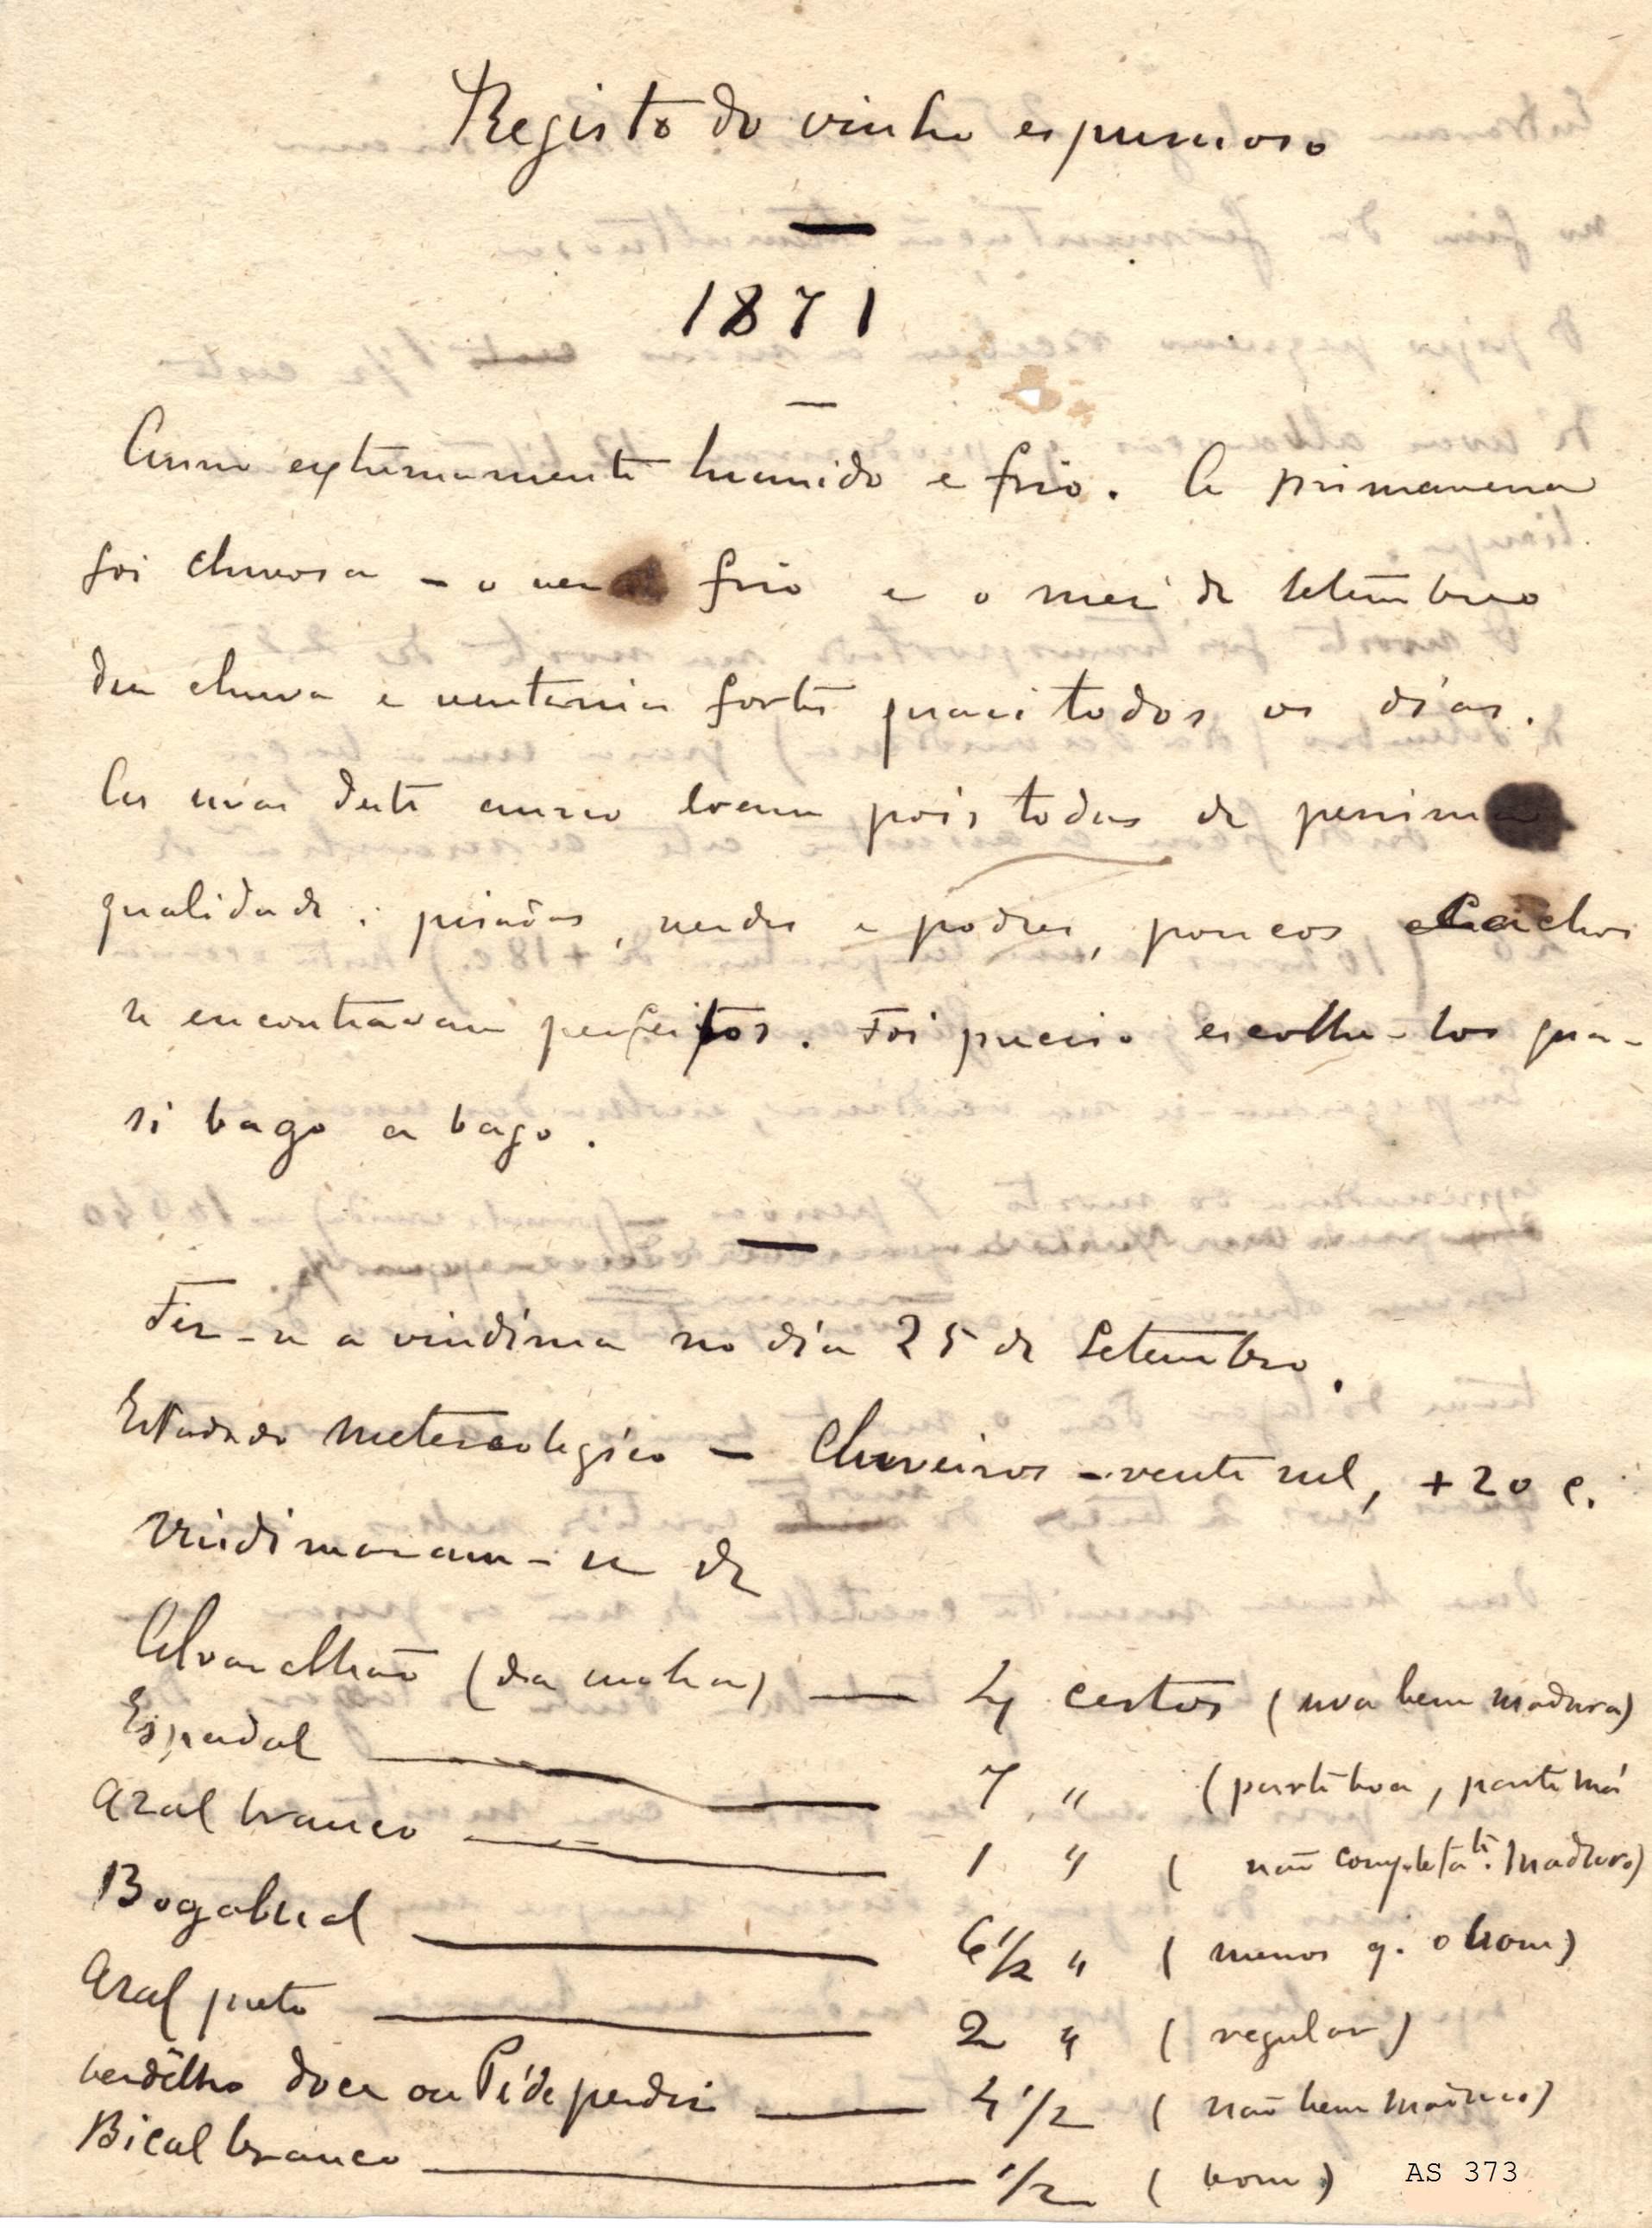 Registo do vinho espumoso
1871
Anno extremamente humido e frio. A primavera
foi chuvosa – o frio e o mez de setembro
deu chuva e ventania forte quasi todos os dias.
As uvas deste anno eram pois todas de pessima
qualidade: pisadas, verdes e podres, poucos cachos
se encontravam perfeitos. Foi preciso escolhe-los qua-
si bago a bago.
Fez-se a vindima no dia 25 de Setembro.
Estado do metereologico – Chuveiros – vento sul, +20 c.
Vindimaram-se de
Alvarelhão (da ) — 4 cestos (uva bem madura)
Espadal — 7 " (parte boa, parte má
Azal branco — 1 " ( não completate. maduro)
Bogalhal — 6 1/2 " ( menos q. o bom)
Azal preto — 2 " ( regular)
Verdêlho doce ou Pé de perdiz — 4 1/2 ( não bem maduro)
Bical branco — 1/2 ( bom )
AS 373